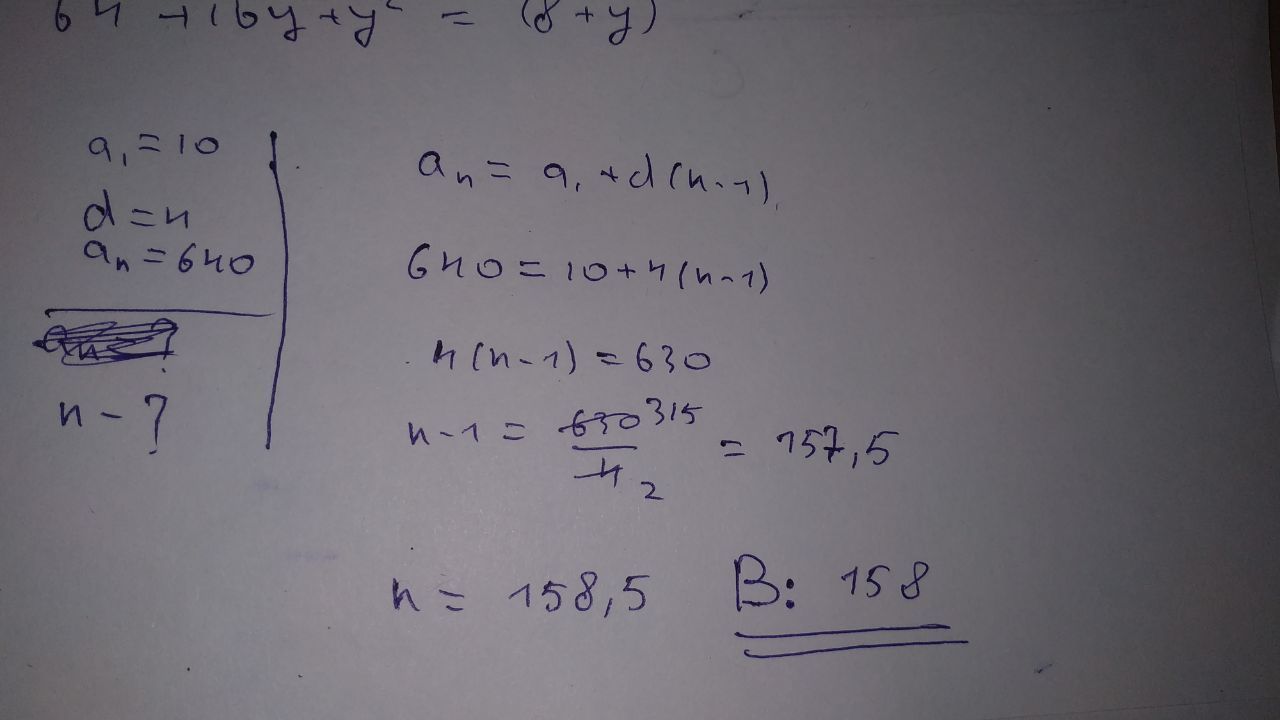 64 + 16y + y² = (8 + y)
a₁ = 10
d = 4
aₙ = 640
n - ?
aₙ = a₁ + d(n-1)
640 = 10 + 4(n-1)
4(n-1) = 630
n-1 = 630 315 / 4 2 = 157,5
n = 158,5 В: 158